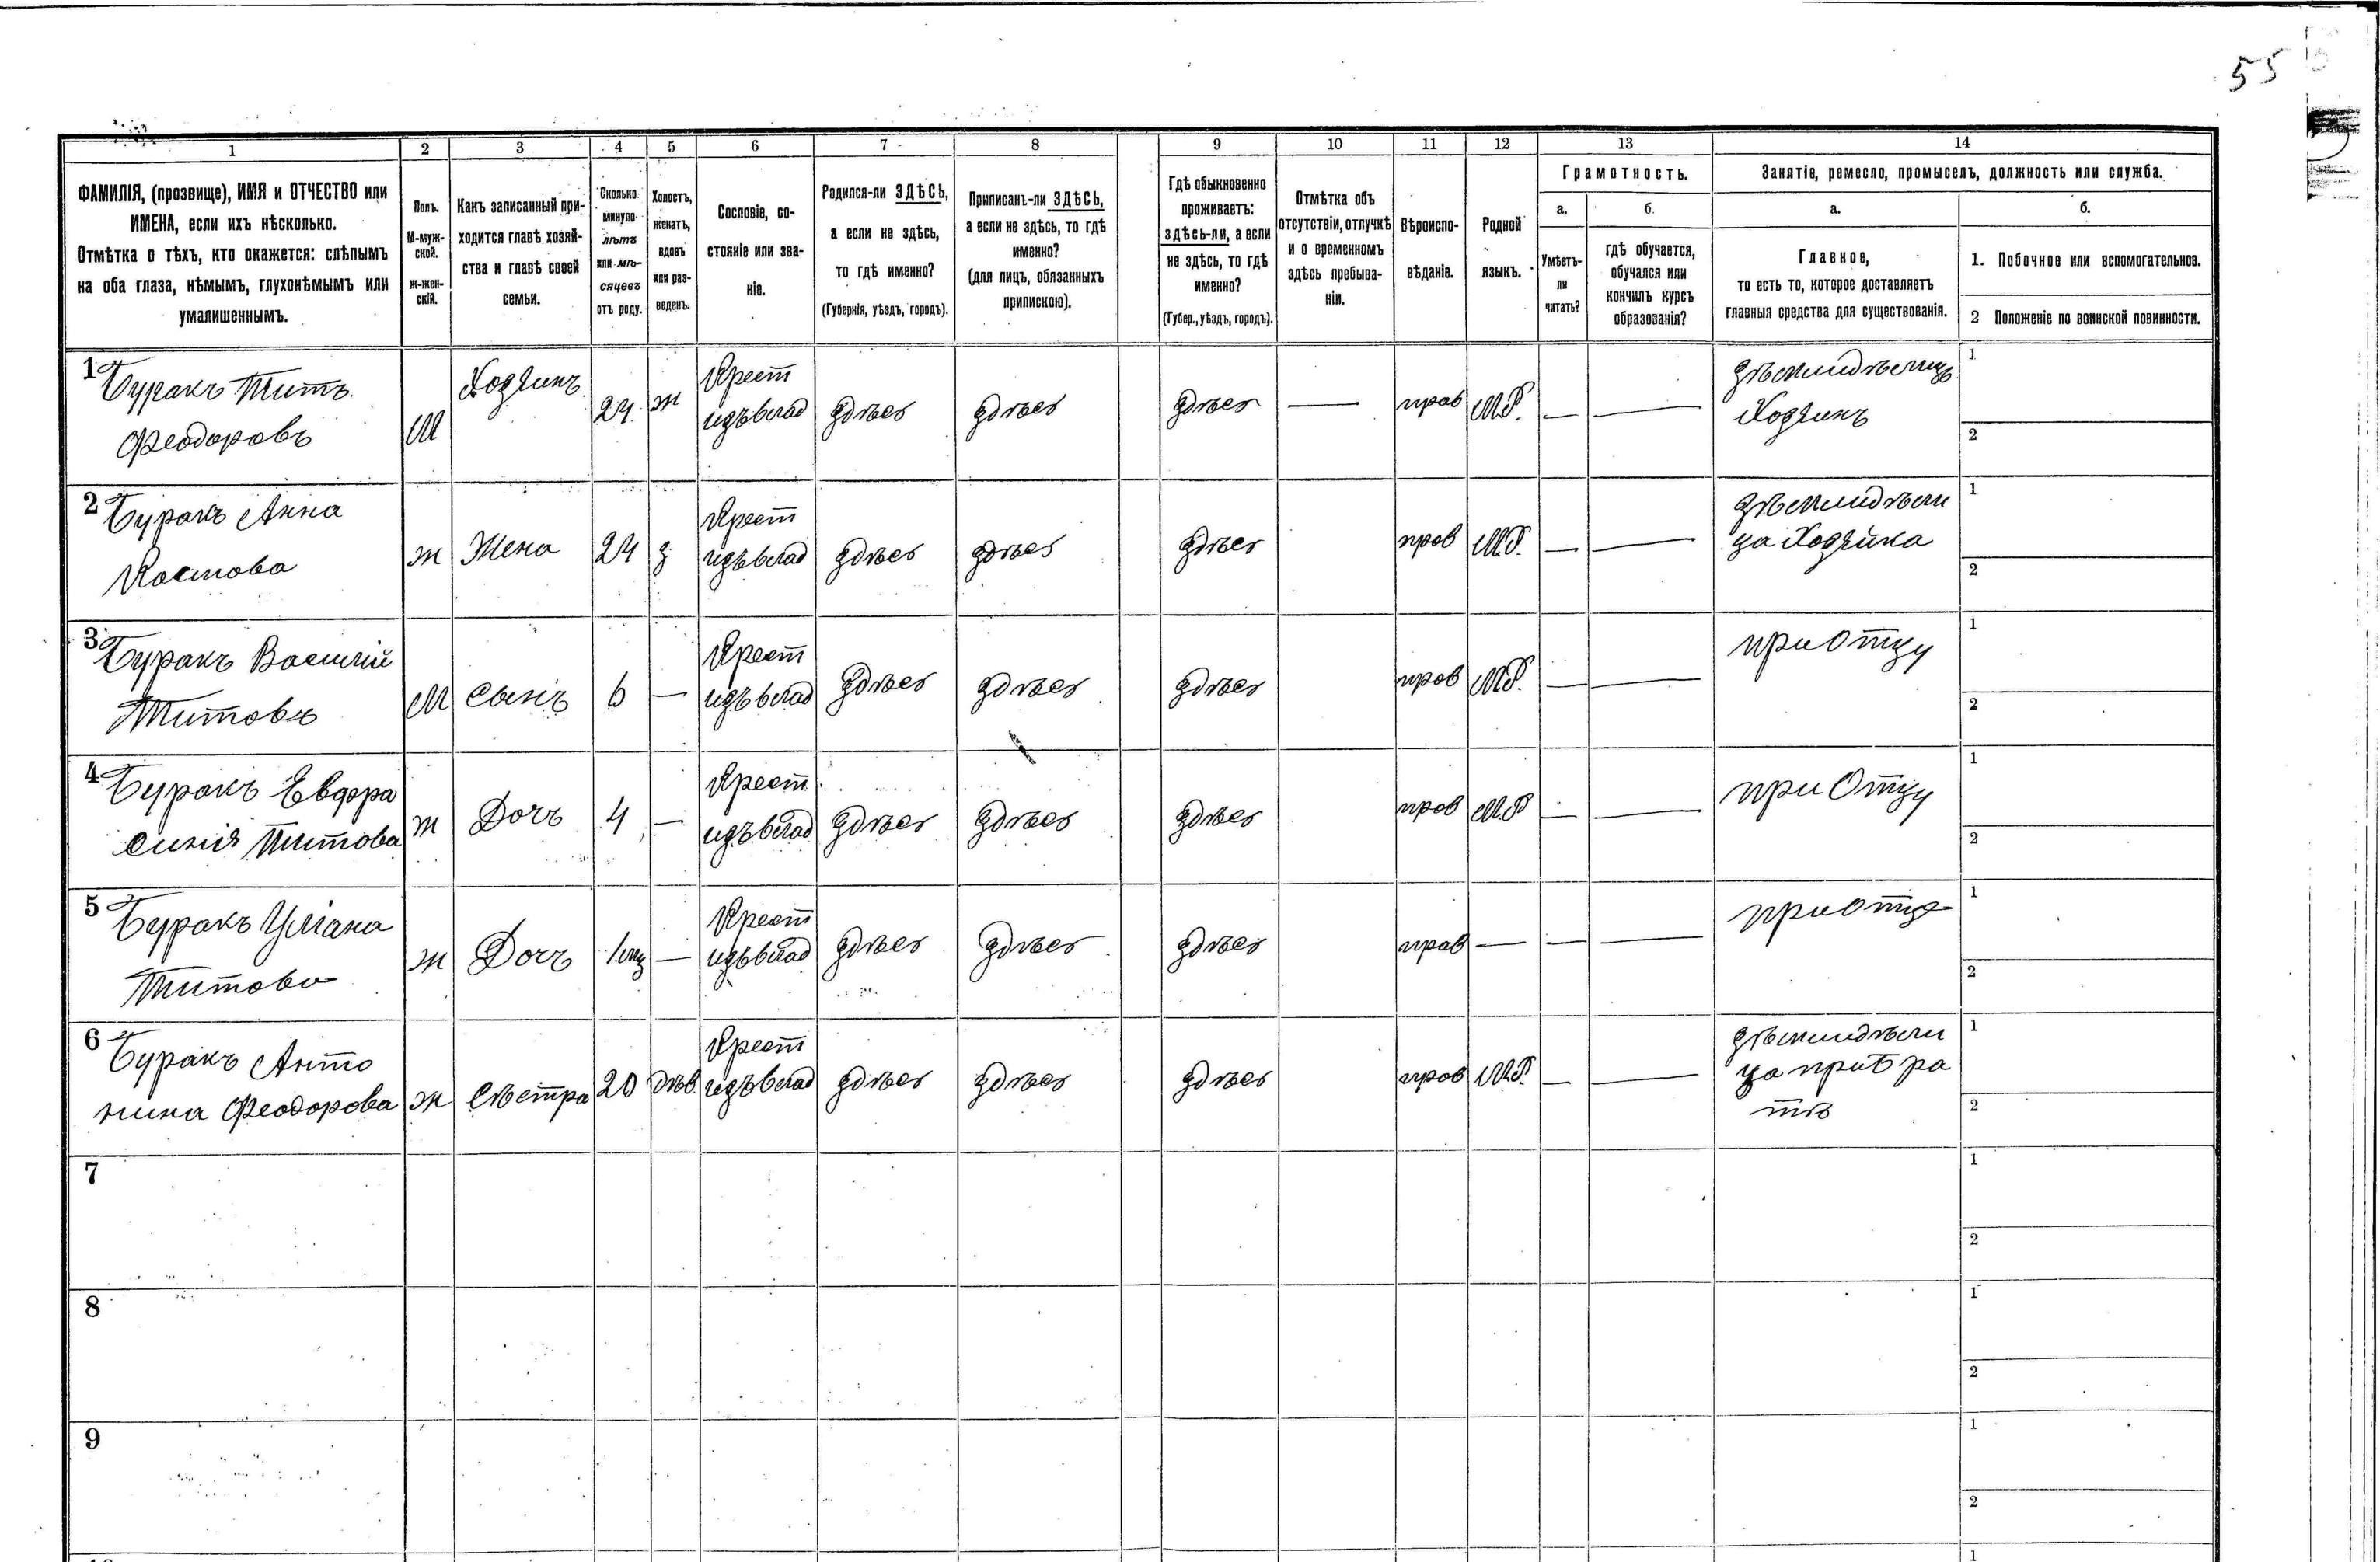 55
1 2 3 4 5 6 7 8 9 10 11 12 13 14
ФАМИЛІЯ, (прозвище), ИМЯ и ОТЧЕСТВО или
ИМЕНА, если ихъ нѣсколько.
Отмѣтка о тѣхъ, кто окажется: слѣпымъ
на оба глаза, нѣмымъ, глухонѣмымъ или
умалишеннымъ.
Полъ.
М-муж-
ской.
ж-жен-
скій.
Какъ записанный при-
ходится главѣ хозяй-
ства и главѣ своей
семьи.
Сколько
минуло
лѣтъ
или мѣ-
сяцевъ
отъ роду.
Холостъ,
женатъ,
вдовъ
или раз-
веденъ.
Сословіе, со-
стояніе или зва-
ніе.
Родился-ли ЗДѢСЬ,
а если не здѣсь,
то гдѣ именно?
(Губернія, уѣздъ, городъ).
Приписанъ-ли ЗДѢСЬ,
а если не здѣсь, то гдѣ
именно?
(для лицъ, обязанныхъ
припискою).
Гдѣ обыкновенно
проживаетъ:
здѣсь-ли, а если
не здѣсь, то гдѣ
именно?
(Губер., уѣздъ, городъ).
Отмѣтка объ
отсутствіи, отлучкѣ
и о временномъ
здѣсь пребыва-
ніи.
Вѣроиспо-
вѣданіе.
Родной
языкъ.
Грамотность.
а.
Умѣетъ-
ли
читать?
б.
гдѣ обучается,
обучался или
кончилъ курсъ
образованія?
Занятіе, ремесло, промыселъ, должность или служба.
а.
Главное,
то есть то, которое доставляетъ
главныя средства для существованія.
б.
1. Побочное или вспомогательное.
2 Положеніе по воинской повинности.
1 Буракъ Титъ
Феодоровъ
М
Хозяинъ
24
ж
Крест
изъ влад
здѣсь
здѣсь
здѣсь
—
прав
М.Р.
—
—
Хозяинъ
1
2
2 Буракъ Анна
ж
Жена
24
з
Крест
изъ влад
здѣсь
здѣсь
здѣсь
пров
М.Р.
—
—
ца Хозяйка
1
2
3 Буракъ Василій
Титовъ
М
Сынъ
6
—
Крест
изъ влад
здѣсь
здѣсь
здѣсь
пров
М.Р.
—
—
при Отцу
1
2
4 Буракъ Евфра
синія Титова
ж
Дочь
4
—
Крест
изъ влад
здѣсь
здѣсь
здѣсь
пров
М.Р
—
—
при Отцу
1
2
5 Буракъ Уліана
Титова
ж
Дочь
1 мц
—
Крест
изъ влад
здѣсь
здѣсь
здѣсь
прав
—
—
—
при Отце
1
2
6 Буракъ Анто
нина Феодорова
ж
Сѣстра
20
дѣв
Крест
изъ влад
здѣсь
здѣсь
здѣсь
пров
М.Р.
—
—
ца при Бра
тѣ
1
2
7
1
2
8
1
2
9
1
2
1